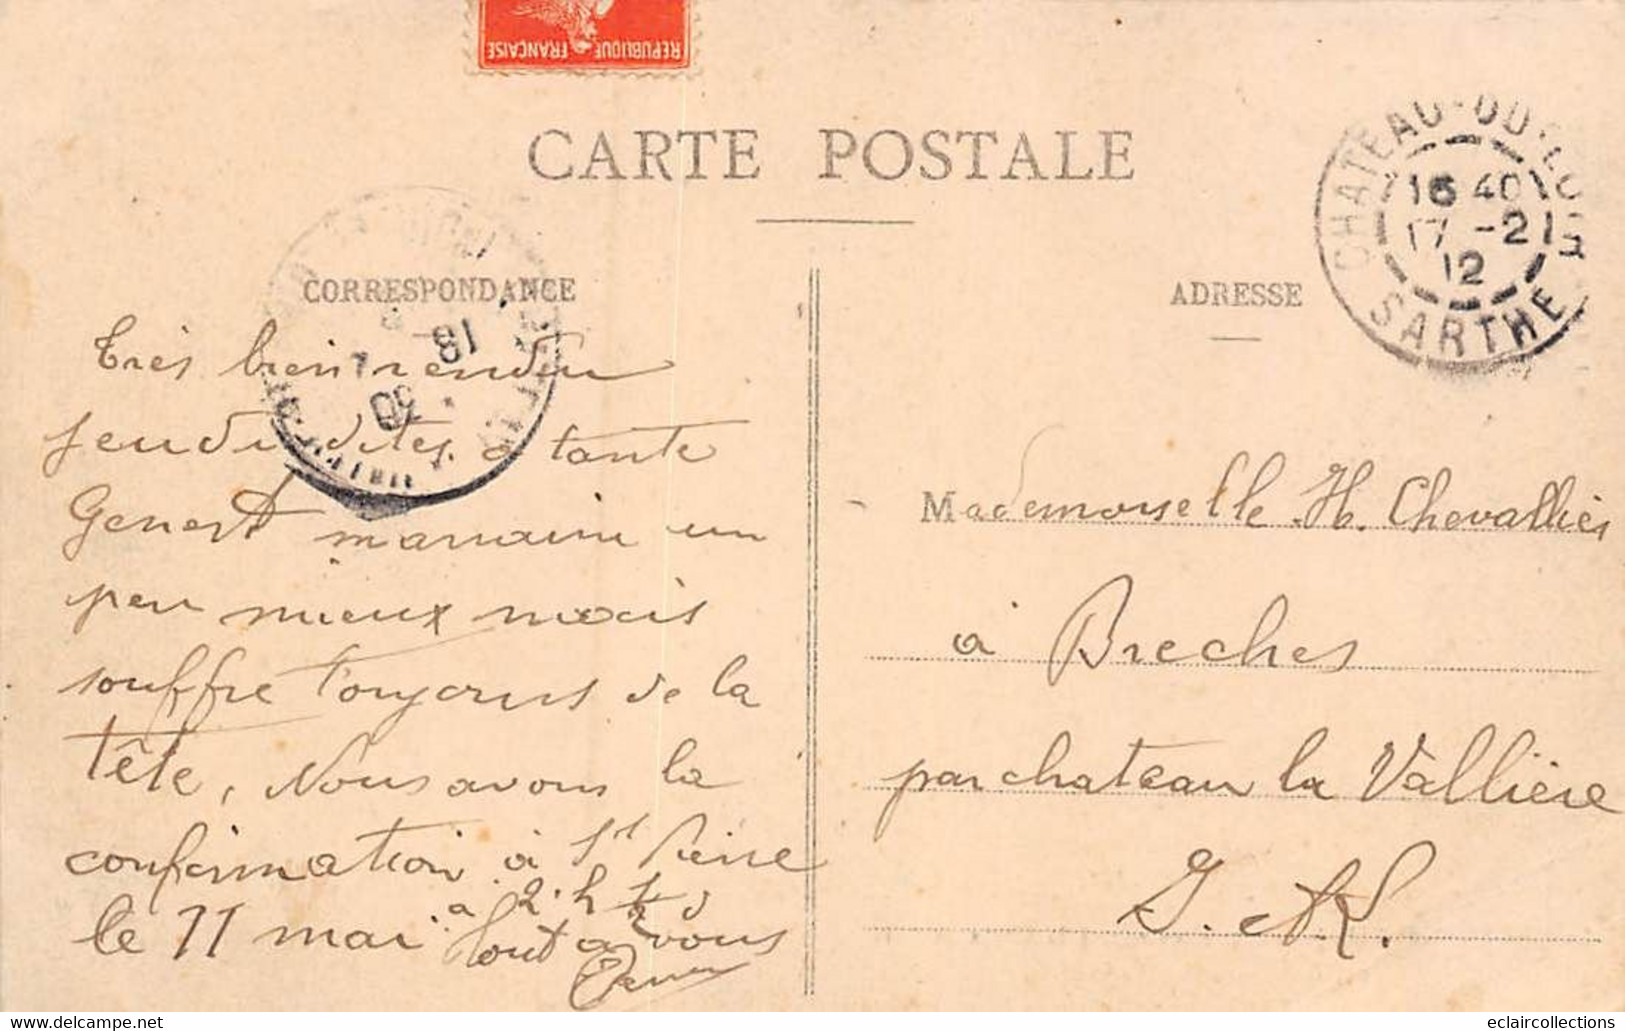 RÉPUBLIQUE FRANÇAISE
CARTE POSTALE
CORRESPONDANCE
ADRESSE
CHATEAU-DU-LOIR
16 40
17 -2
12
SARTHE
18
30
Très bien rendu
jeudi dites à tante
Genest marraine un
peu mieux mais
souffre toujours de la
tête, Nous avons la
confirmation à St Pierre
le 11 mai à 2 h 1/2
Tout à vous
Mademoiselle H. Chevallier
à Breches
par chateau la Vallière
I. et L.
eclaircollections
www.delcampe.net